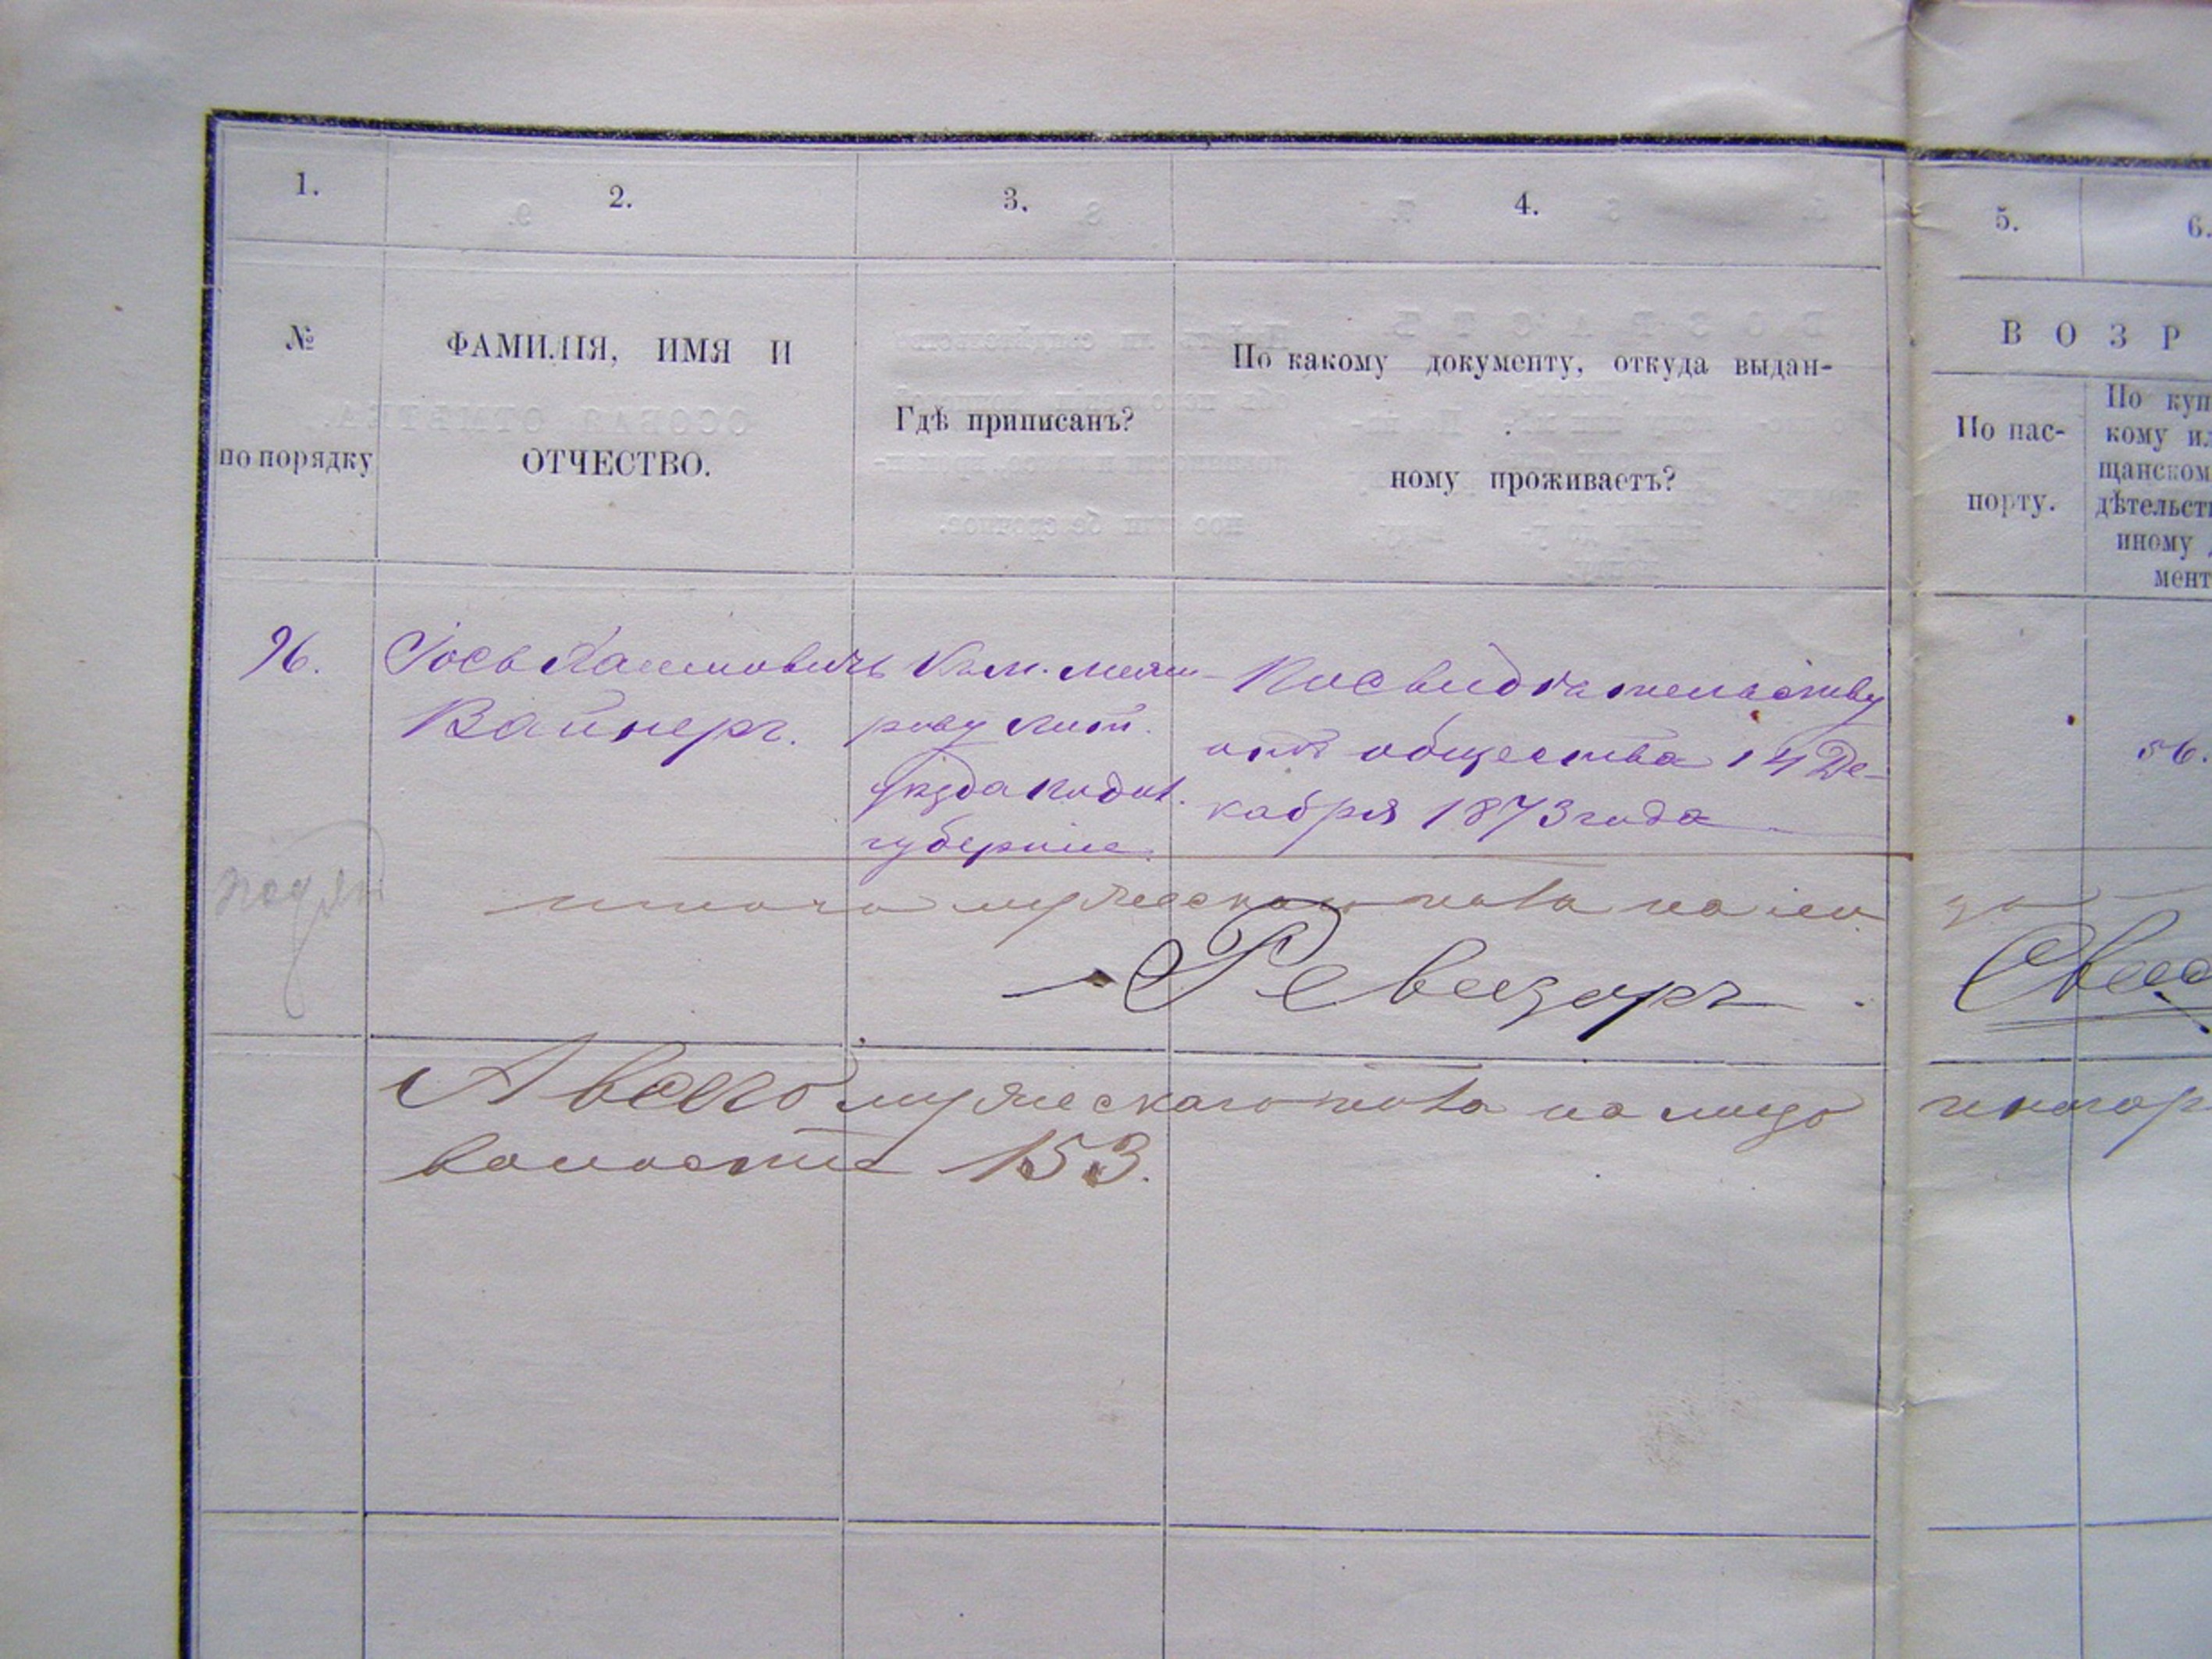 1.
2.
3.
4.
5.
6.
№
по порядку
ФАМИЛІЯ, ИМЯ И
ОТЧЕСТВО.
Гдѣ приписанъ?
По какому документу, откуда выдан-
ному проживаетъ?
ВОЗР
По пас-
порту.
По куп
кому ил
щанском
дѣтельст
иному
мент
96.
Іось Хаимовичъ
Вайнеръ.
рову Лит.
уѣзда Подол.
губерніи.
По свидѣтельству
отъ общества 14 Де-
кабря 1873 года
56.
итого мужескаго пола на ли
цо
Ревизоръ
А всего мужескаго пола на лицо
волости 153.